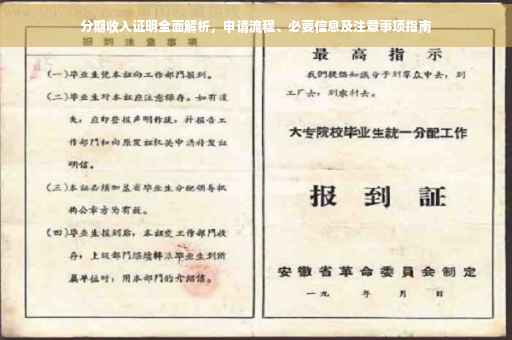 分期收入证明全面解析，申请流程、必要信息及注意事项指南
报到注意事项
(一)毕业生凭本证向工作部门报到。
(二)毕业生对本证应注意保存。如有遗
失，应即登报声明作废，并报告工
作部门和向原发证机关申请补发证
明信。
(三)本证必须加盖省毕业生分配领导机
构公章方为有效。
(四)毕业生报到后，本证交工作部门收
存；上级部门
毕业生到所
属单位时，用本部门的介绍信。
最高指示
我们提倡知识分子到群众中去，到
工厂去，到农村去。
大专院校毕业生统一分配工作
报到证
安徽省革命委员会制定
一九 年 月 日